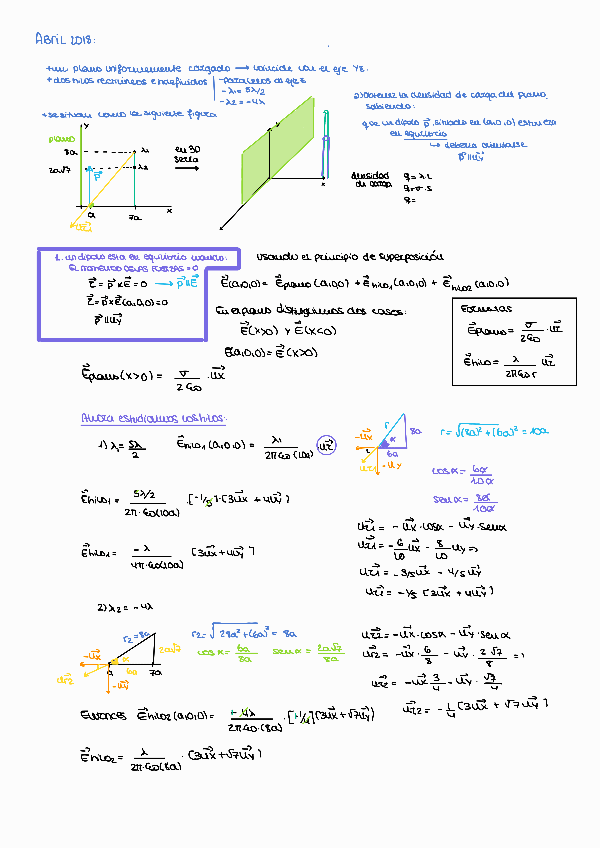 ABRIL 2018:
+un plano uniformemente cargado → coincide con el eje YZ.
+dos hilos rectilíneos e indefinidos
-paralelos al eje z
-λ1 = 5λ/2
-λ2 = -4λ
+se sitúan como la siguiente figura
2) Obtener la densidad de carga del plano
sabiendo:
que un dipolo p⃗ situado en (a,0,0) está
en equilibrio
↳ deberá orientarse
p⃗ ∥ u⃗y
plano
y
8a
2a√7
λ1
λ2
p⃗
a
7a
x
en 3D
sería
y
x
densidad
de carga
q = λ·L
q = σ·S
q =
1. un dipolo está en equilibrio cuando:
El momento de las fuerzas = 0
τ⃗ = p⃗ x E⃗ = 0 → p⃗ ∥ E⃗
τ⃗ = p⃗ x E⃗(a,0,0) = 0
p⃗ ∥ u⃗y
usando el principio de superposición
E⃗(a,0,0) = E⃗plano (a,0,0) + E⃗hilo1 (a,0,0) + E⃗hilo2 (a,0,0)
En el plano distinguimos dos casos:
E⃗(x>0) y E⃗(x<0)
E⃗(a,0,0) = E⃗(x>0)
Fórmulas
E⃗plano = σ/2ε0 · u⃗r
E⃗hilo = λ/2πε0r u⃗r
E⃗plano (x>0) = σ/2ε0 · u⃗x
Ahora estudiamos los hilos:
1) λ1 = 5λ/2 E⃗hilo1 (a,0,0) = λ1/2πε0(10a) · u⃗r
-u⃗x
r
8a
α
6a
u⃗r1
-u⃗y
r = √(8a)² + (6a)² = 10a
cos α = 6a/10a
sen α = 8a/10a
E⃗hilo1 = 5λ/2 / 2π·ε0(10a) · [-1/5]·[3u⃗x + 4u⃗y]
E⃗hilo1 = -λ/4π·ε0(10a) [3u⃗x + 4u⃗y]
u⃗r1 = -u⃗x·cos α - u⃗y·sen α
u⃗r1 = -6/10 u⃗x - 8/10 u⃗y =>
u⃗r1 = -3/5 u⃗x - 4/5 u⃗y
u⃗r1 = -1/5 [3u⃗x + 4u⃗y]
2) λ2 = -4λ
r2 = 8a
2a√7
-u⃗x
α
a
6a
7a
u⃗r2
-u⃗y
r2 = √28a² + (6a)² = 8a
cos α = 6a/8a sen α = 2a√7/8a
u⃗r2 = -u⃗x·cos α - u⃗y·sen α
u⃗r2 = -u⃗x · 6/8 - u⃗y · 2√7/8 =>
u⃗r2 = -u⃗x 3/4 - u⃗y · √7/4
u⃗r2 = -1/4 [3u⃗x + √7u⃗y]
Entonces E⃗hilo2 (a,0,0) = -4λ/2πε0(8a) · [-1/4] [3u⃗x + √7u⃗y]
E⃗hilo2 = λ/2π·ε0(8a) · [3u⃗x + √7u⃗y]